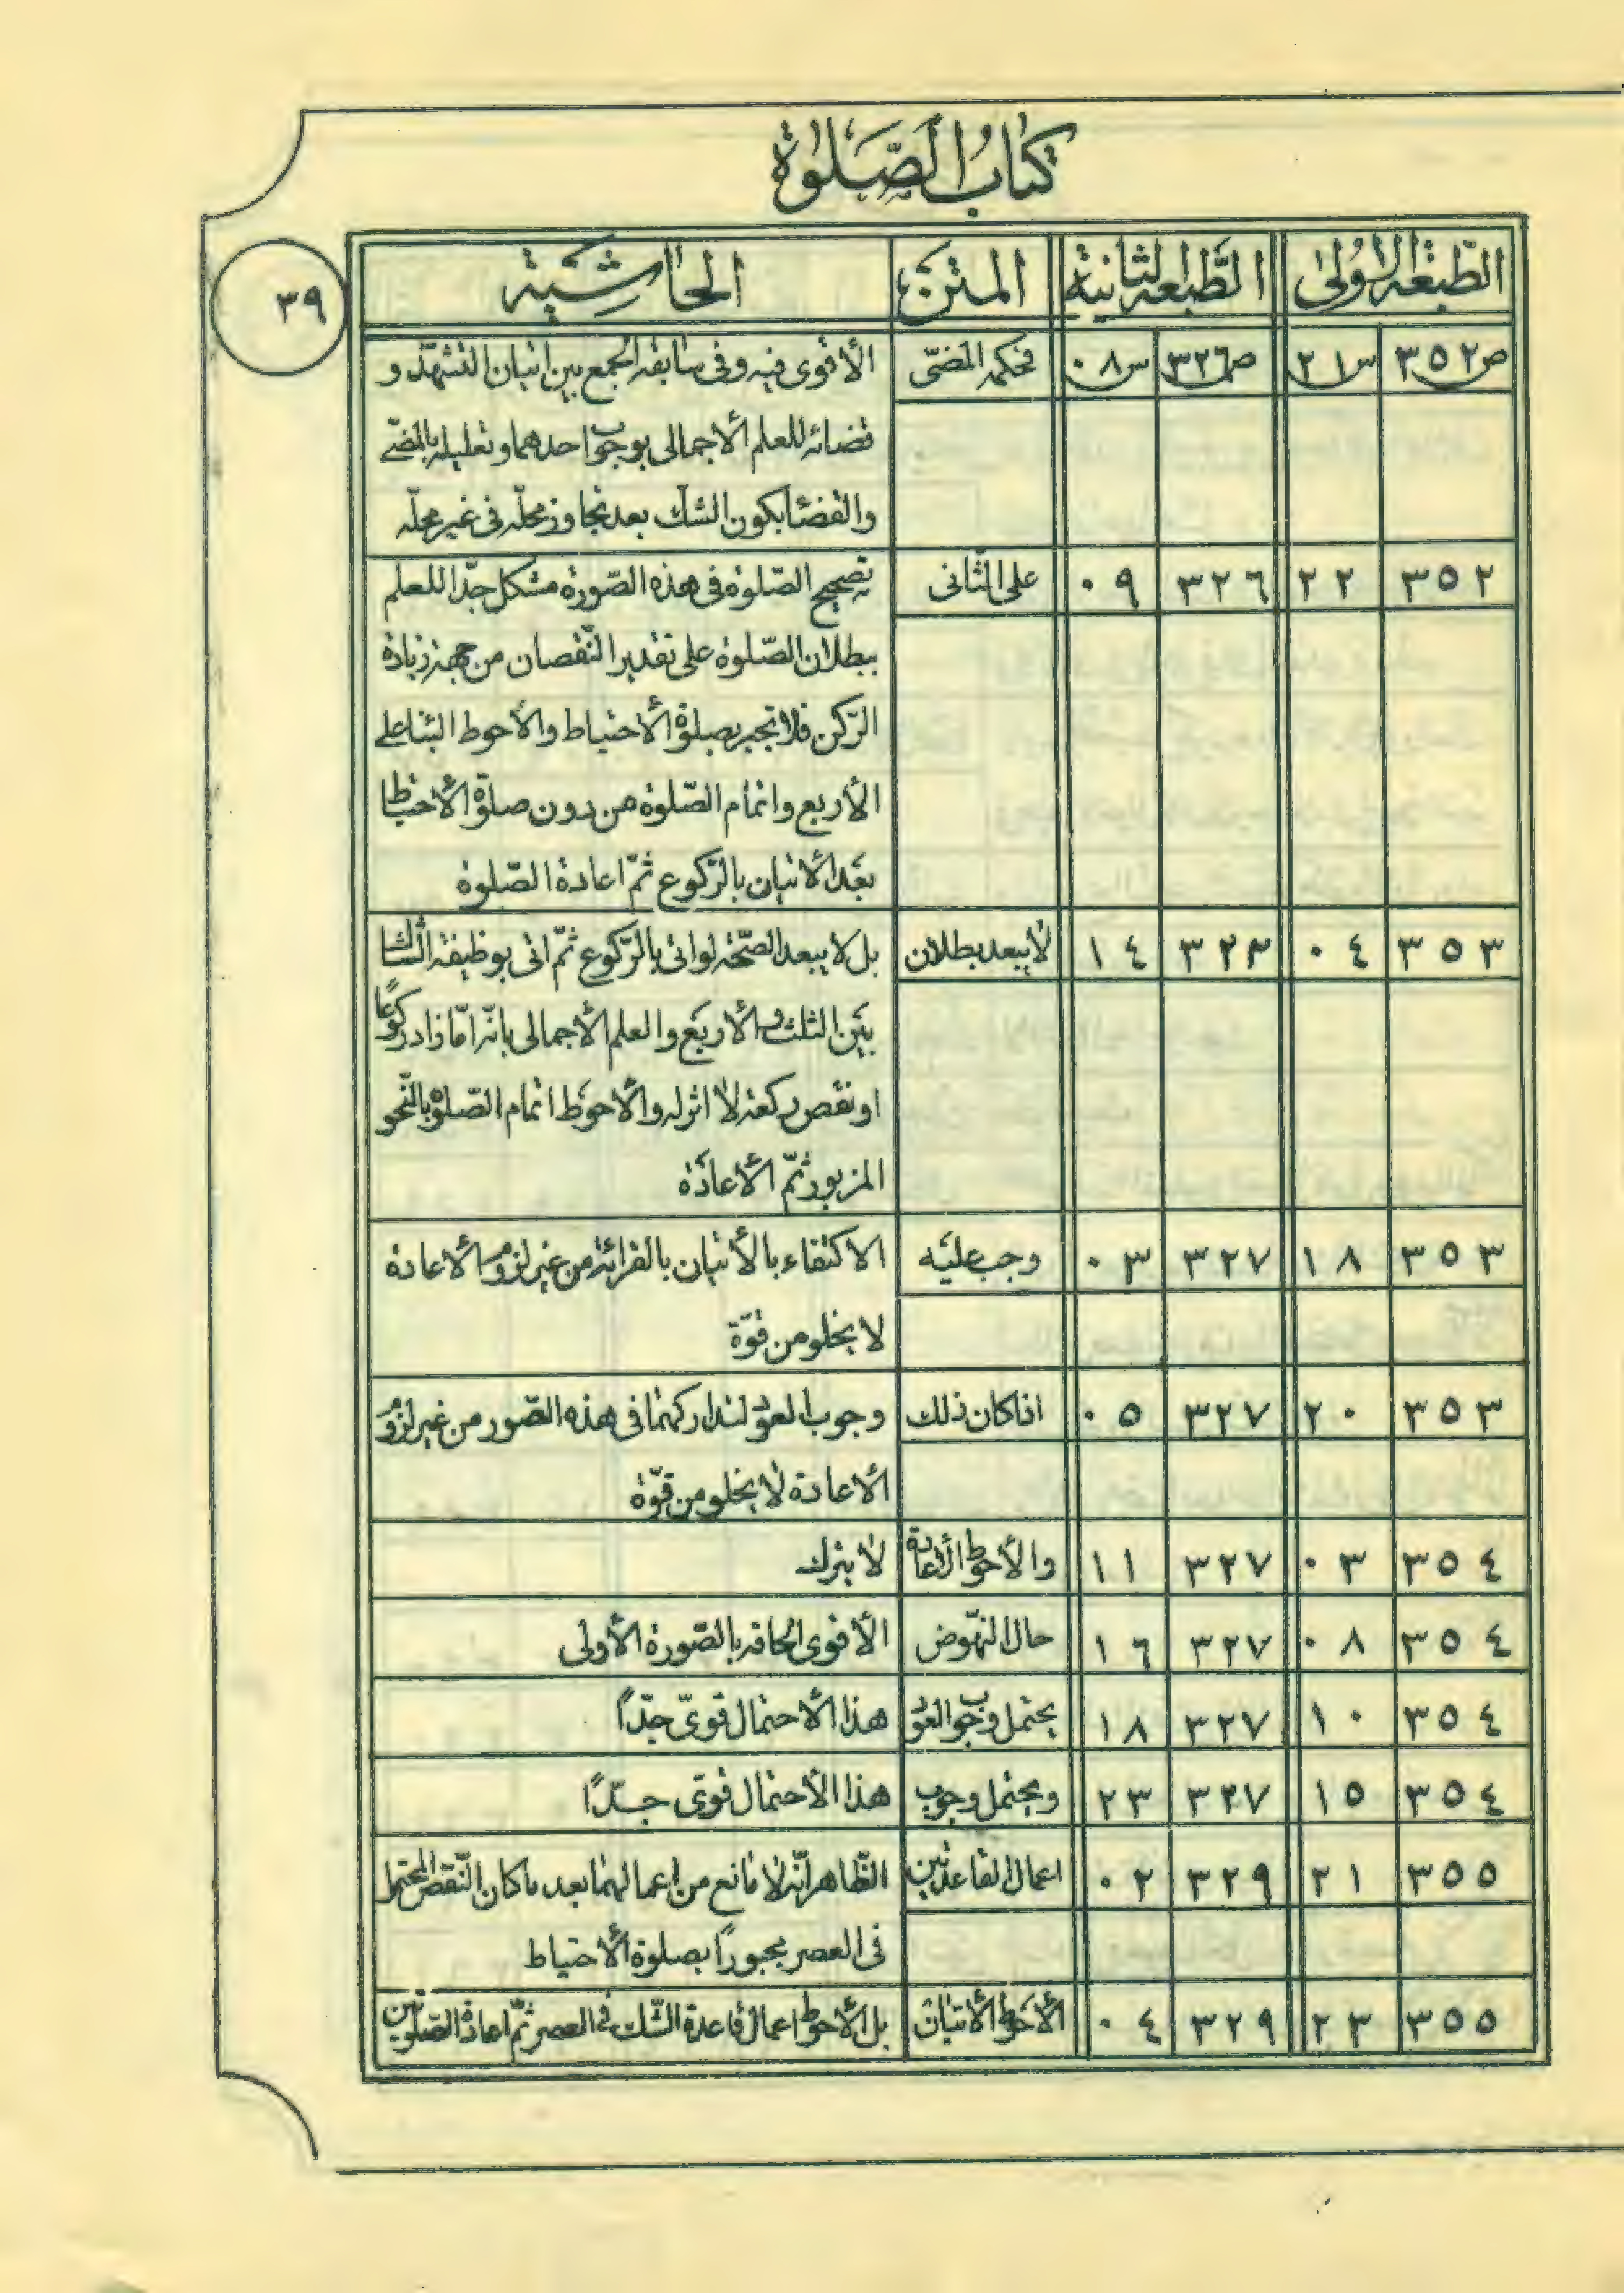 كتاب الصّلوة
٣٩
الطّبعة الاولى الطّبعة الثانية المتن الحاشية
ص٣٥٢ س٢١ ص٣٢٦ س٠٨ فحكمه المضىّ الأقوى فيه وفى سابقه الجمع بين اتيان التشهّد و
قضائه للعلم الأجمالى بوجوب احدهما وتعليله بالمضىّ
والقضا بكون الشكّ بعد تجاوز محلّه فى غير محلّه
٣٥٢ ٢٢ ٣٢٦ ٠٩ على الثّانى تصحيح الصّلوة فى هذه الصّورة مشكل جدّا للعلم
ببطلان الصّلوة على تقدير النّقصان من جهة زيادة
الرّكن فلا تجبر بصلوة الأحتياط والأحوط البنا على
الأربع واتمام الصّلوة من دون صلوة الأحتياط
بعد الأتيان بالرّكوع ثمّ اعادة الصّلوة
٣٥٣ ٠٤ ٣٢٣ ١٤ لا يبعد بطلان بل لا يبعد الصّحّة لو اتى بالرّكوع ثمّ اتى بوظيفة الشّاك
بين الثلث والأربع والعلم الأجمالى بانّه امّا زاد ركوعًا
او نقص ركعة لا اثر له والأحوط اتمام الصّلوة بالنّحو
المزبور ثمّ الأعادة
٣٥٣ ١٨ ٣٢٧ ٠٣ وجب عليه الاكتفاء بالأتيان بالقرائة من غير لزوم الأعادة
لا يخلو من قوّة
٣٥٣ ٢٠ ٣٢٧ ٠٥ اذا كان ذلك وجوب العود لتداركهما فى هذه الصّور من غير لزوم
الأعادة لا يخلو من قوّة
٣٥٤ ٠٣ ٣٢٧ ١١ والأحوط الأعادة لا يترك
٣٥٤ ٠٨ ٣٢٧ ١٦ حال النّهوض الأقوى الحاقه بالصّورة الأولى
٣٥٤ ١٠ ٣٢٧ ١٨ يحتمل وجوب العود هذا الأحتمال قوىّ جدّاً
٣٥٤ ١٥ ٣٢٧ ٢٣ ويحتمل وجوب هذا الأحتمال قوىّ جدّاً
٣٥٥ ٢١ ٣٢٩ ٠٢ اعمال القاعدتين الظّاهر انّه لا مانع من اعمالهما بعد ما كان النّقص المحتمل
فى العصر مجبوراً بصلوة الأحتياط
٣٥٥ ٢٣ ٣٢٩ ٠٤ الأحوط الأتيان بل الأحوط اعمال قاعدة الشّك فى العصر ثمّ اعادة الصّلوتين